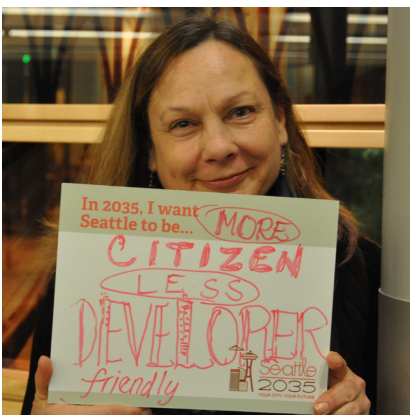 In 2035, I want
Seattle to be... MORE
CITIZEN
LESS
DEVELOPER
friendly
Seattle
2035
YOUR CITY, YOUR FUTURE